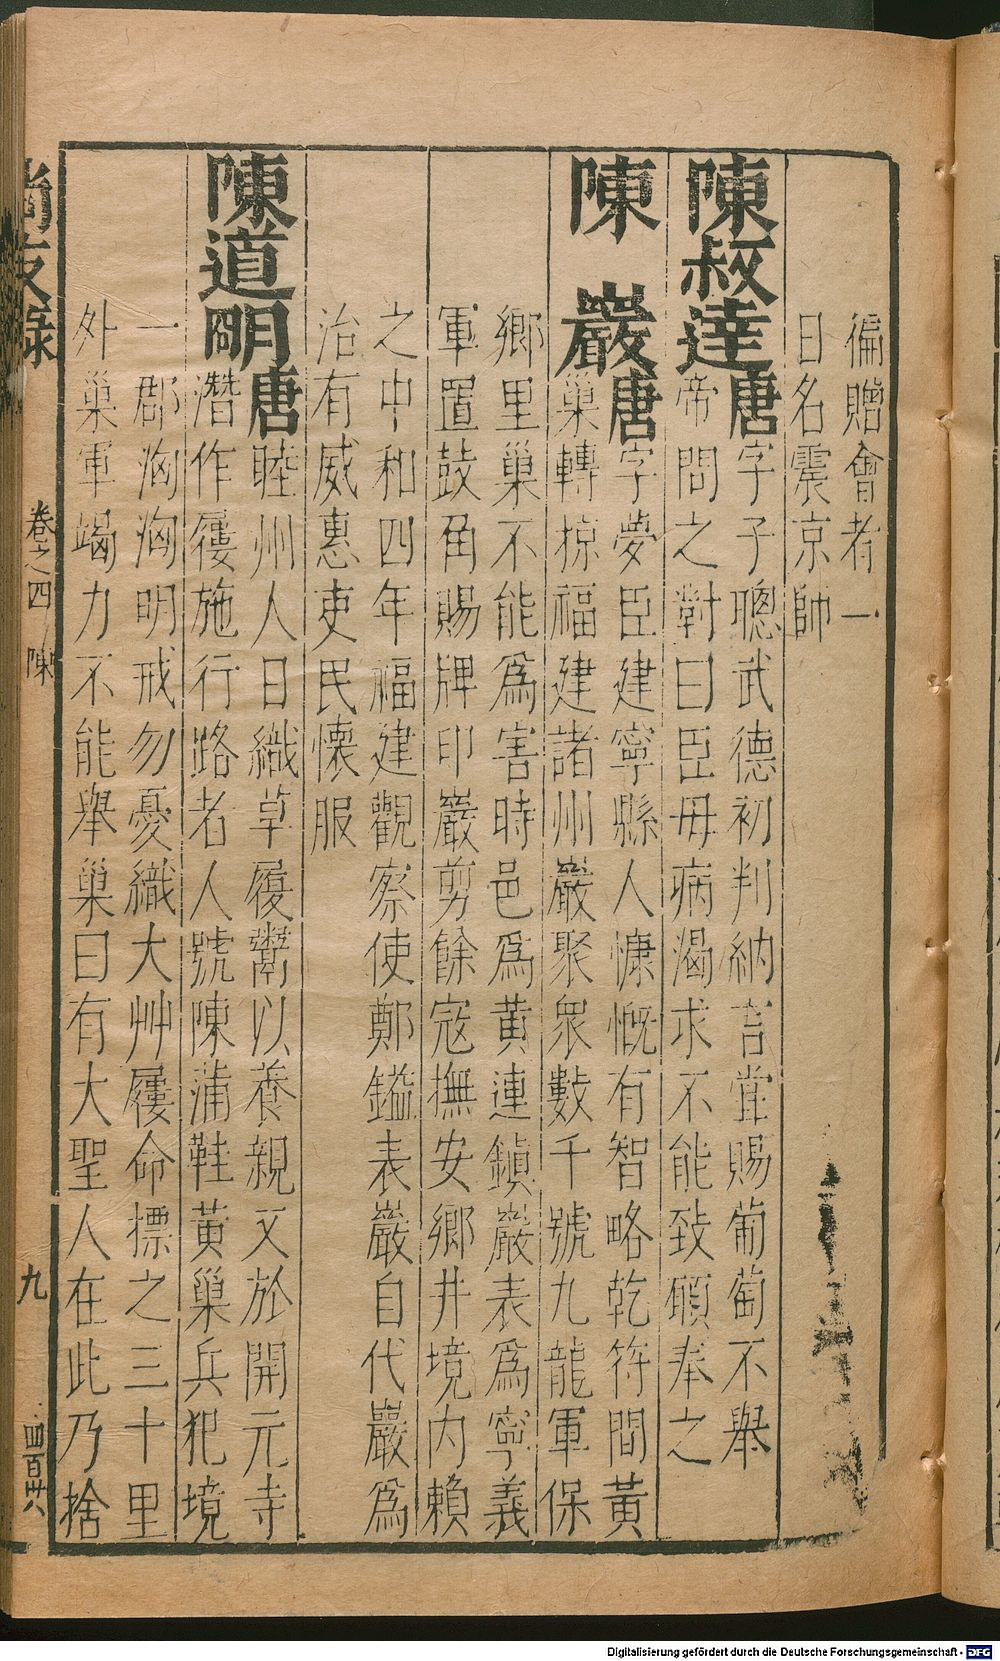 徧贈會者一
日名震京師
陳叔達唐字子聰武德初判納言嘗賜葡萄不舉
帝問之對曰臣母病渴求不能致願奉之
陳巖唐字夢臣建寧縣人慷慨有智略乾符間黃
巢轉掠福建諸州巖聚衆數千號九龍軍保
鄉里巢不能爲害時邑爲黃連鎭巖表爲寧義
軍置鼓角賜牌印巖剪餘寇撫安鄉井境内賴
之中和四年福建觀察使鄭鎰表巖自代巖爲
治有威惠吏民懷服
陳道明唐睦州人日織草履鬻以養親又於開元寺
潛作屨施行路者人號陳蒲鞋黃巢兵犯境
一郡洶洶明戒勿憂織大艸屨命摽之三十里
外巢軍竭力不能舉巢曰有大聖人在此乃捨
尚友錄 卷之四 陳 九 四百卅八
Digitalisierung gefördert durch die Deutsche Forschungsgemeinschaft - DFG